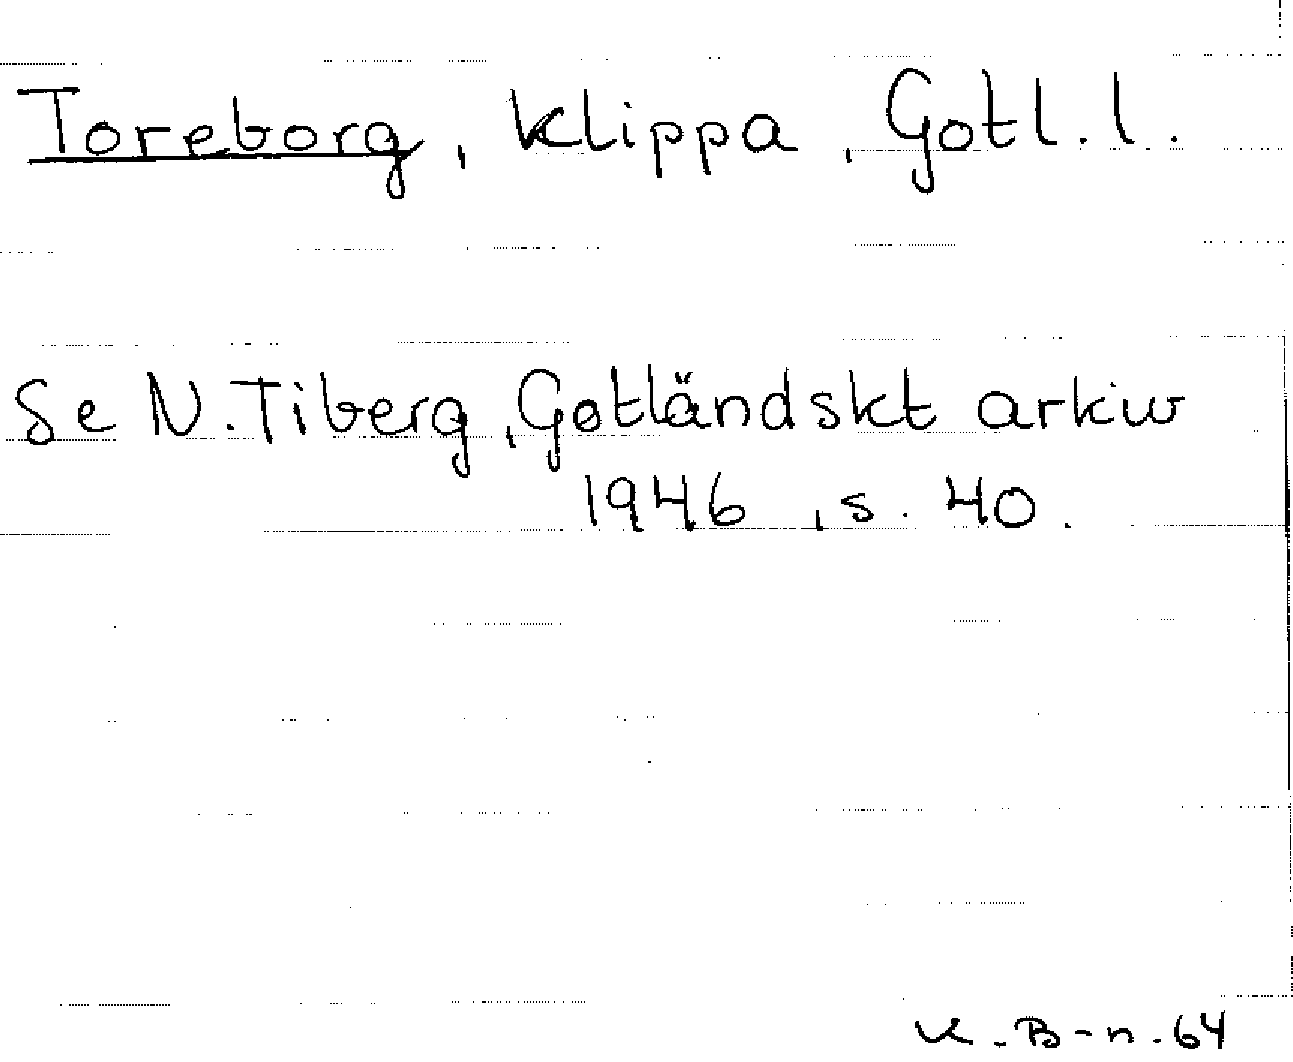 Toreborg, klippa, Gotl. l.
Se N. Tiberg, Gotländskt arkiv
1946, s. 40.
K. B-n. 64